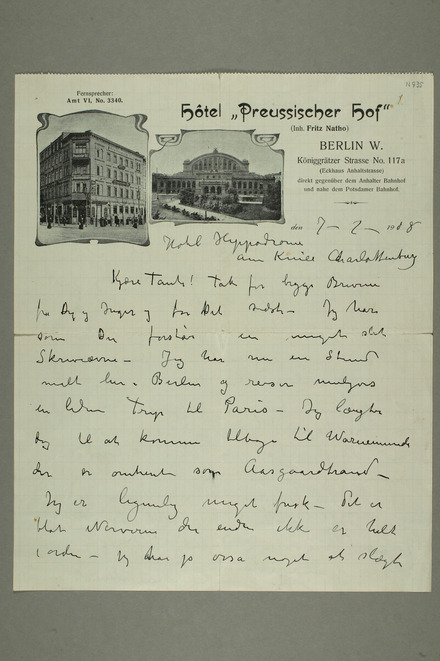 N 935
Fernsprecher:
Amt VI, No. 3340.
Hôtel „Preussischer Hof"
(Inh. Fritz Natho)
BERLIN W.
Königgrätzer Strasse No. 117a
(Eckhaus Anhaltstrasse)
direkt gegenüber dem Anhalter Bahnhof
und nahe dem Potsdamer Bahnhof.
den 7 – 2 – 1908
Hotel Hippodrome
am Knie Charlottenburg
Kjære Tante! Tak for begge Brevene
fra Dig og Inger og for det sidste – Jeg har
som Du forstår en meget slet
Skriveævne – Jeg har nu en Stund
vært her i Berlin og reiser muligens
en liden Trip til Paris – Jeg længter
dog til at komme tilbage til Warnemünde
der er omtrent som Aasgaardstrand –
Jeg er ligemeget frisk – det er
blot Nerverne der endnu ikke er helt
i orden – Jeg har jo ossa noget at slægte